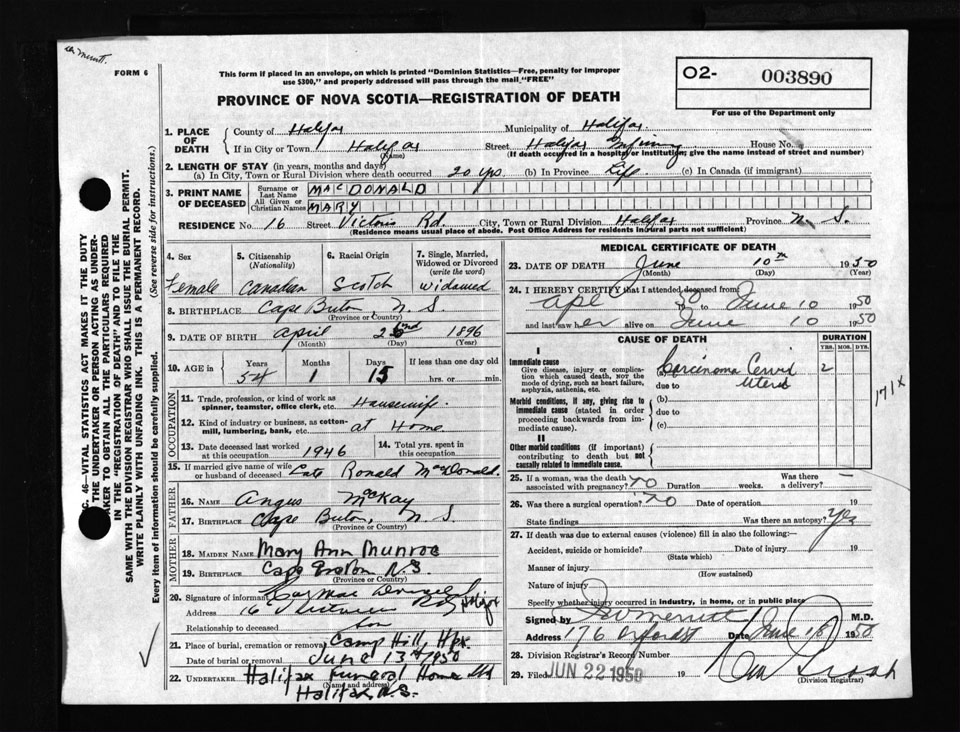 FORM 6
This form if placed in an envelope, on which is printed "Dominion Statistics—Free, penalty for improper
use $300," and properly addressed will pass through the mail "FREE"
PROVINCE OF NOVA SCOTIA—REGISTRATION OF DEATH
O2- 003890
For use of the Department only
1. PLACE OF DEATH { County of Halifax Municipality of Halifax
If in City or Town Halifax (Name) Street Halifax Infirmary House No.
(If death occurred in a hospital or institution, give the name instead of street and number)
2. LENGTH OF STAY (in years, months and days)
(a) In City, Town or Rural Division where death occurred 20 yrs. (b) In Province Life (c) In Canada (if immigrant)
3. PRINT NAME OF DECEASED { Surname or Last Name MACDONALD
All Given or Christian Names MARY
RESIDENCE No 16 Street Victoria Rd. City, Town or Rural Division Halifax Province N. S.
(Residence means usual place of abode. Post Office Address for residents in rural parts not sufficient)
4. Sex Female
5. Citizenship (Nationality) Canadian
6. Racial Origin Scotch
7. Single, Married, Widowed or Divorced (write the word) Widowed
8. BIRTHPLACE Cape Breton N. S.
(Province or Country)
9. DATE OF BIRTH April 1896
(Month) (Day) (Year)
10. AGE in { Years 54 Months 1 Days 15 If less than one day old
hrs. or min.
OCCUPATION
11. Trade, profession, or kind of work as spinner, teamster, office clerk, etc. Housewife
12. Kind of industry or business, as cotton-mill, lumbering, bank, etc. at Home
13. Date deceased last worked at this occupation 1946
14. Total yrs. spent in this occupation
15. If married give name of wife or husband of deceased } Late Ronald MacDonald.
FATHER
16. NAME Angus McKay
17. BIRTHPLACE Cape Breton, N. S.
(Province or Country)
MOTHER
18. MAIDEN NAME Mary Ann Munroe
19. BIRTHPLACE Cape Breton N.S.
(Province or Country)
20. Signature of informant
Address 16
Relationship to deceased son
21. Place of burial, cremation or removal Camp Hill, Hfx.
Date of burial or removal June 13th 1950
22. UNDERTAKER Halifax Funeral Home Ltd
(Name and address) Halifax, N.S.
MEDICAL CERTIFICATE OF DEATH
23. DATE OF DEATH June 10th 1950
(Month) (Day) (Year)
24. I HEREBY CERTIFY that I attended deceased from
50 to June 10 1950
and last saw her alive on June 10 1950
CAUSE OF DEATH
DURATION
YRS. MOS. DYS.
I
Immediate cause
Give disease, injury or complication which caused death, not the mode of dying, such as heart failure, asphyxia, asthenia, etc.
(a) Carcinoma Cervix 2
due to Uterus
171x
Morbid conditions, if any, giving rise to immediate cause (stated in order proceeding backwards from immediate cause).
(b)
due to
(c)
II
Other morbid conditions (if important) contributing to death but not causally related to immediate cause.
25. If a woman, was the death associated with pregnancy? no Duration weeks. Was there a delivery? —
26. Was there a surgical operation? no Date of operation 19
State findings Was there an autopsy? Yes
27. If death was due to external causes (violence) fill in also the following:—
Accident, suicide or homicide? Date of injury 19
(State which)
Manner of injury
(How sustained)
Nature of injury
Specify whether injury occurred in industry, in home, or in public place
Signed by Merritt M.D.
Address 176 Oxford St Date June 1950
28. Division Registrar's Record Number
29. Filed JUN 22 1950 19
(Division Registrar)
C. 46—VITAL STATISTICS ACT MAKES IT THE DUTY
THE UNDERTAKER OR PERSON ACTING AS UNDER-
TAKER TO OBTAIN ALL THE PARTICULARS REQUIRED
IN THE "REGISTRATION OF DEATH" AND TO FILE THE
SAME WITH THE DIVISION REGISTRAR WHO SHALL ISSUE THE BURIAL PERMIT.
WRITE PLAINLY WITH UNFADING INK. THIS IS A PERMANENT RECORD.
Every item of information should be carefully supplied. (See reverse side for instructions.)